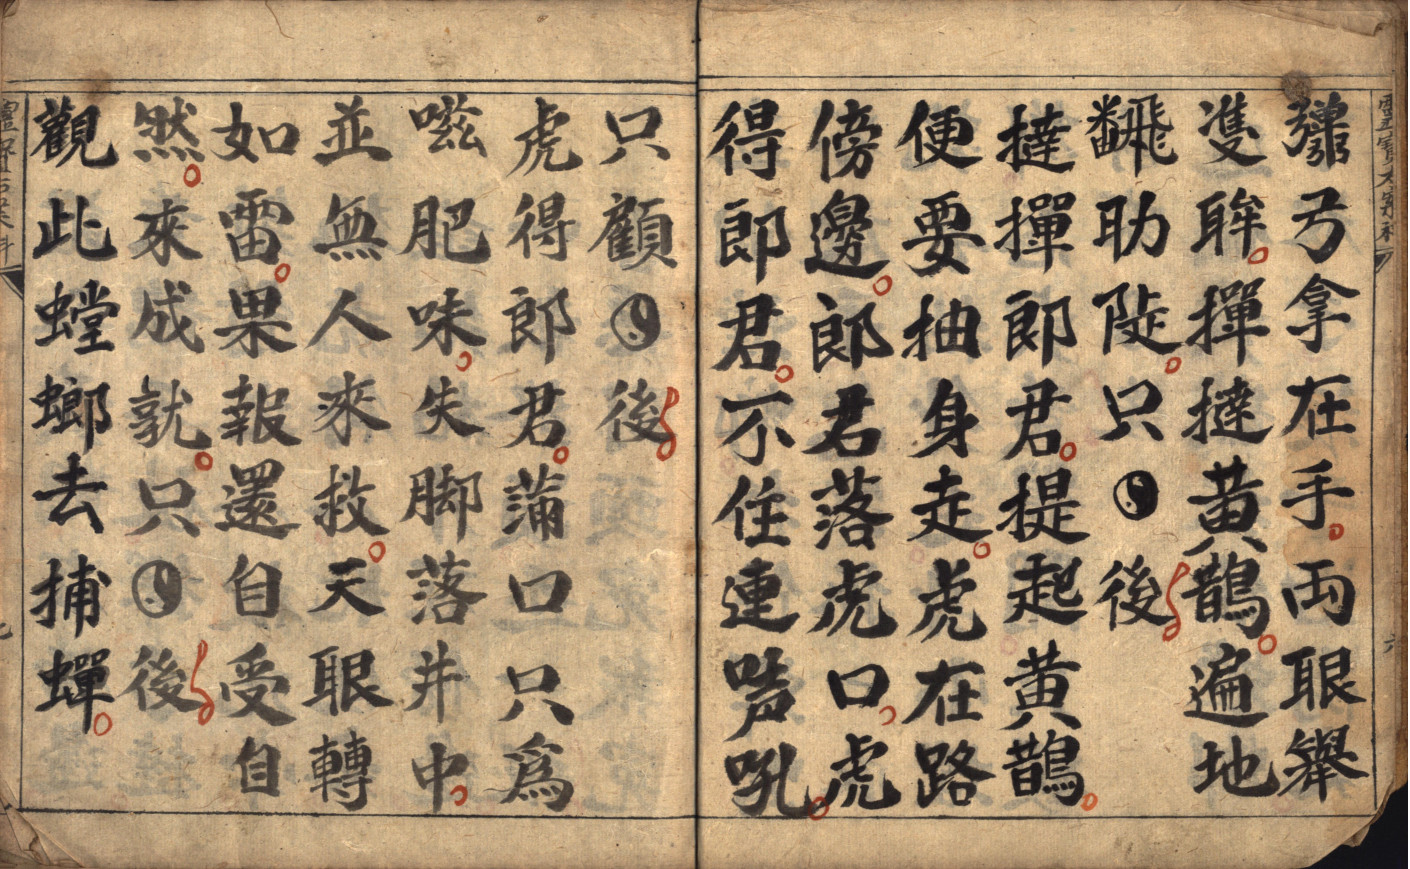 彈弓拿在手両眼舉
隻眸撣撻黃鵲遍地
飜飛肋陡只☯後
撻撣郎君提起黃鵲
便要抽身走虎在路
傍邊郎君落虎口虎
得郎君不住連嗲吼
只顧☯後
虎得郎君蒲口只爲
嗞肥味失脚落井中
並無人來救天眼轉
如雷果報還自受自
然來成就只☯後
觀此螳螂去捕蟬